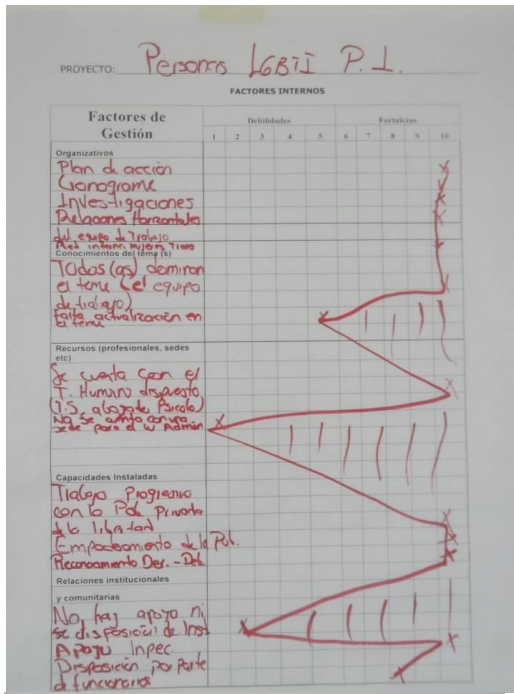 PROYECTO: Personas LGBTI P. L.
FACTORES INTERNOS
Factores de Gestión
Debilidades Fortalezas
1 2 3 4 5 6 7 8 9 10
Organizativos
Plan de acción
Cronograma
Investigaciones
Relaciones Horizontales
del equipo de Trabajo
Red intern. mujeres Trans
Conocimientos del tema (s)
Todos (as) dominan
el tema (el equipo
de trabajo)
falta actualización en
el tema
Recursos (profesionales, sedes
etc)
Se cuenta con el
T. Humano dispuesto
(T.S, abogado Psicolo)
No se cuenta con una
sede para el Admin
Capacidades Instaladas
Trabajo Progresivo
con la Pob. Privada
de la libertad
Empoderamiento de la Pob.
Reconocimiento Der. - Deb.
Relaciones institucionales
y comunitarias
No hay apoyo ni
se disposición de Inst
Apoyo Inpec
Disposición por parte
d funcionarios